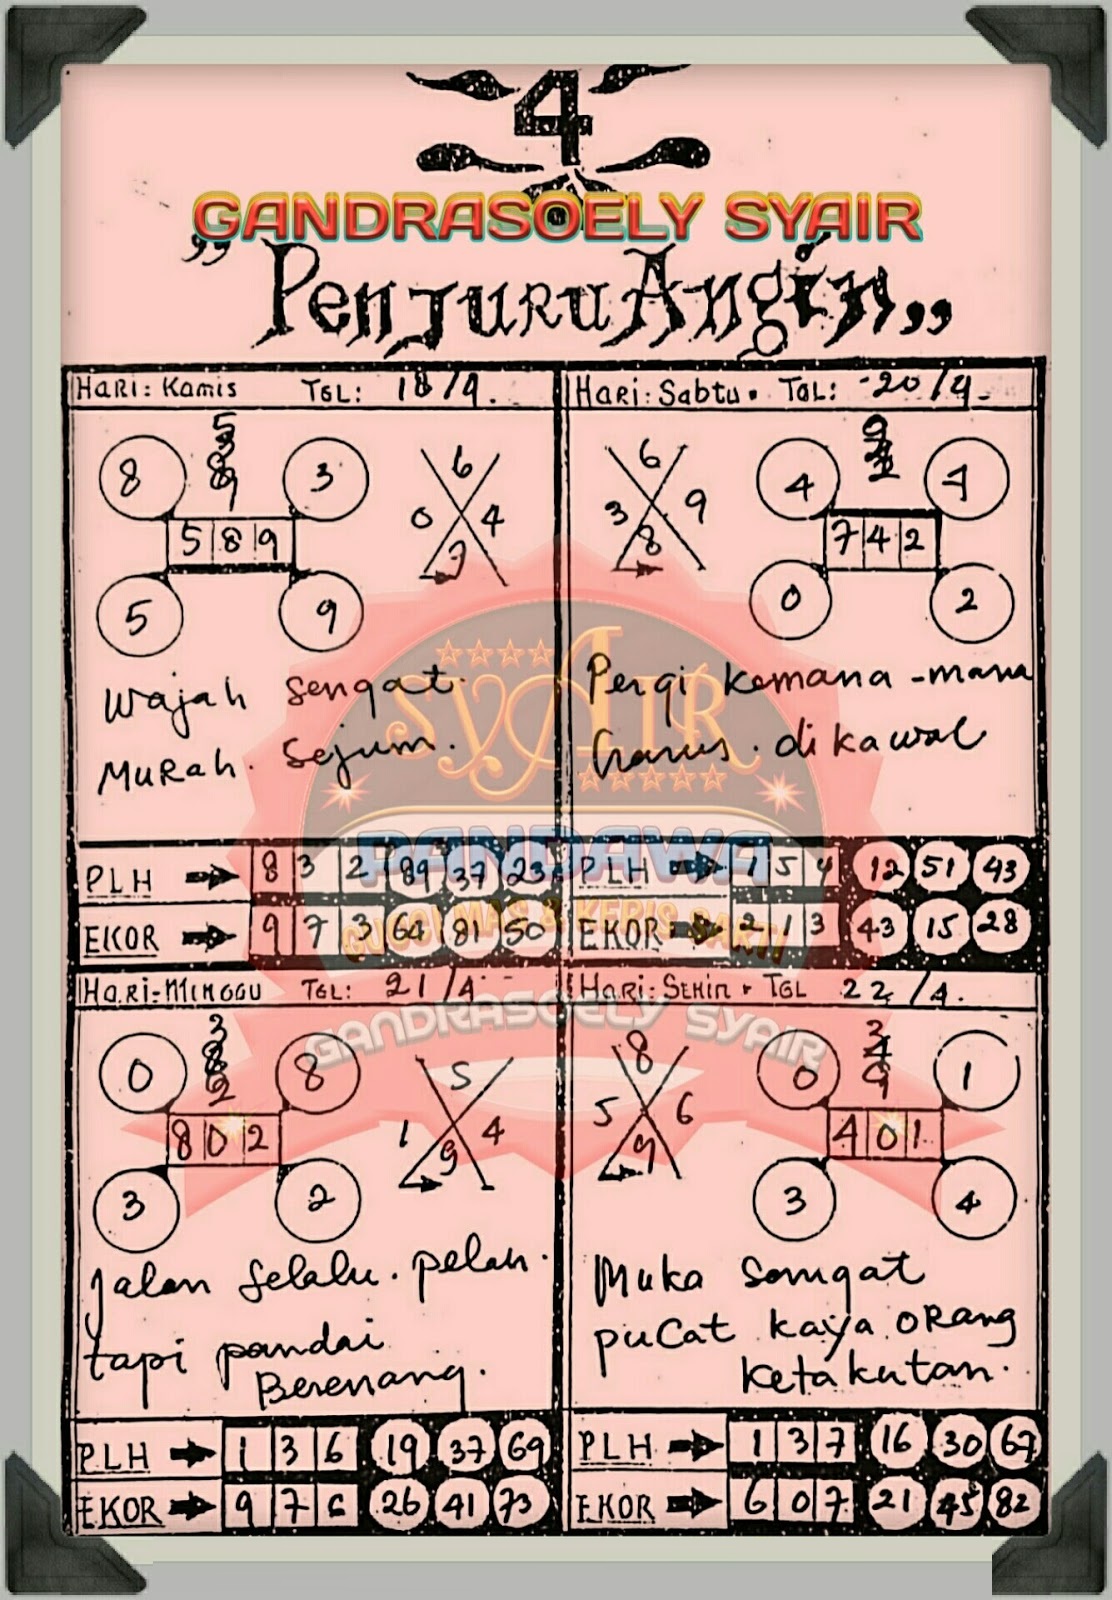 4
GANDRASOELY SYAIR
"Penjuru Angin"
HARI: Kamis TGL: 18/4.
5
3
8
9
8 3
5 8 9
5 9
6
0 4
7
Wajah sengat
MuRah. Sejum.
PLH 8 3 2 89 37 23
EKOR 9 7 3 64 81 50
HARi: Sabtu. TGL: 20/4.
4 4
7 4 2
0 2
6
3 9
8
Pergi kemana-mana
harus. dikawal
PLH 1 5 4 12 51 43
EKOR 2 1 3 43 15 28
SYAIR
PANDAWA
GUCCI MAS & KERIS SAKTI
GANDRASOELY SYAIR
HARi: MINGGU TGL: 21/4
3
8
0
2
0 8
8 0 2
3 2
5
1 4
9
Jalan selalu. pelan.
tapi pandai
Berenang.
PLH 1 3 6 19 37 69
EKOR 9 7 6 26 41 73
HARi: SENIN. TGL 22/4.
0 1
4 0 1
3 4
8
5 6
9
Muka samgat
puCat kaya ORang
Ketakutan.
PLH 1 3 7 16 30 67
EKOR 6 0 7 21 45 82